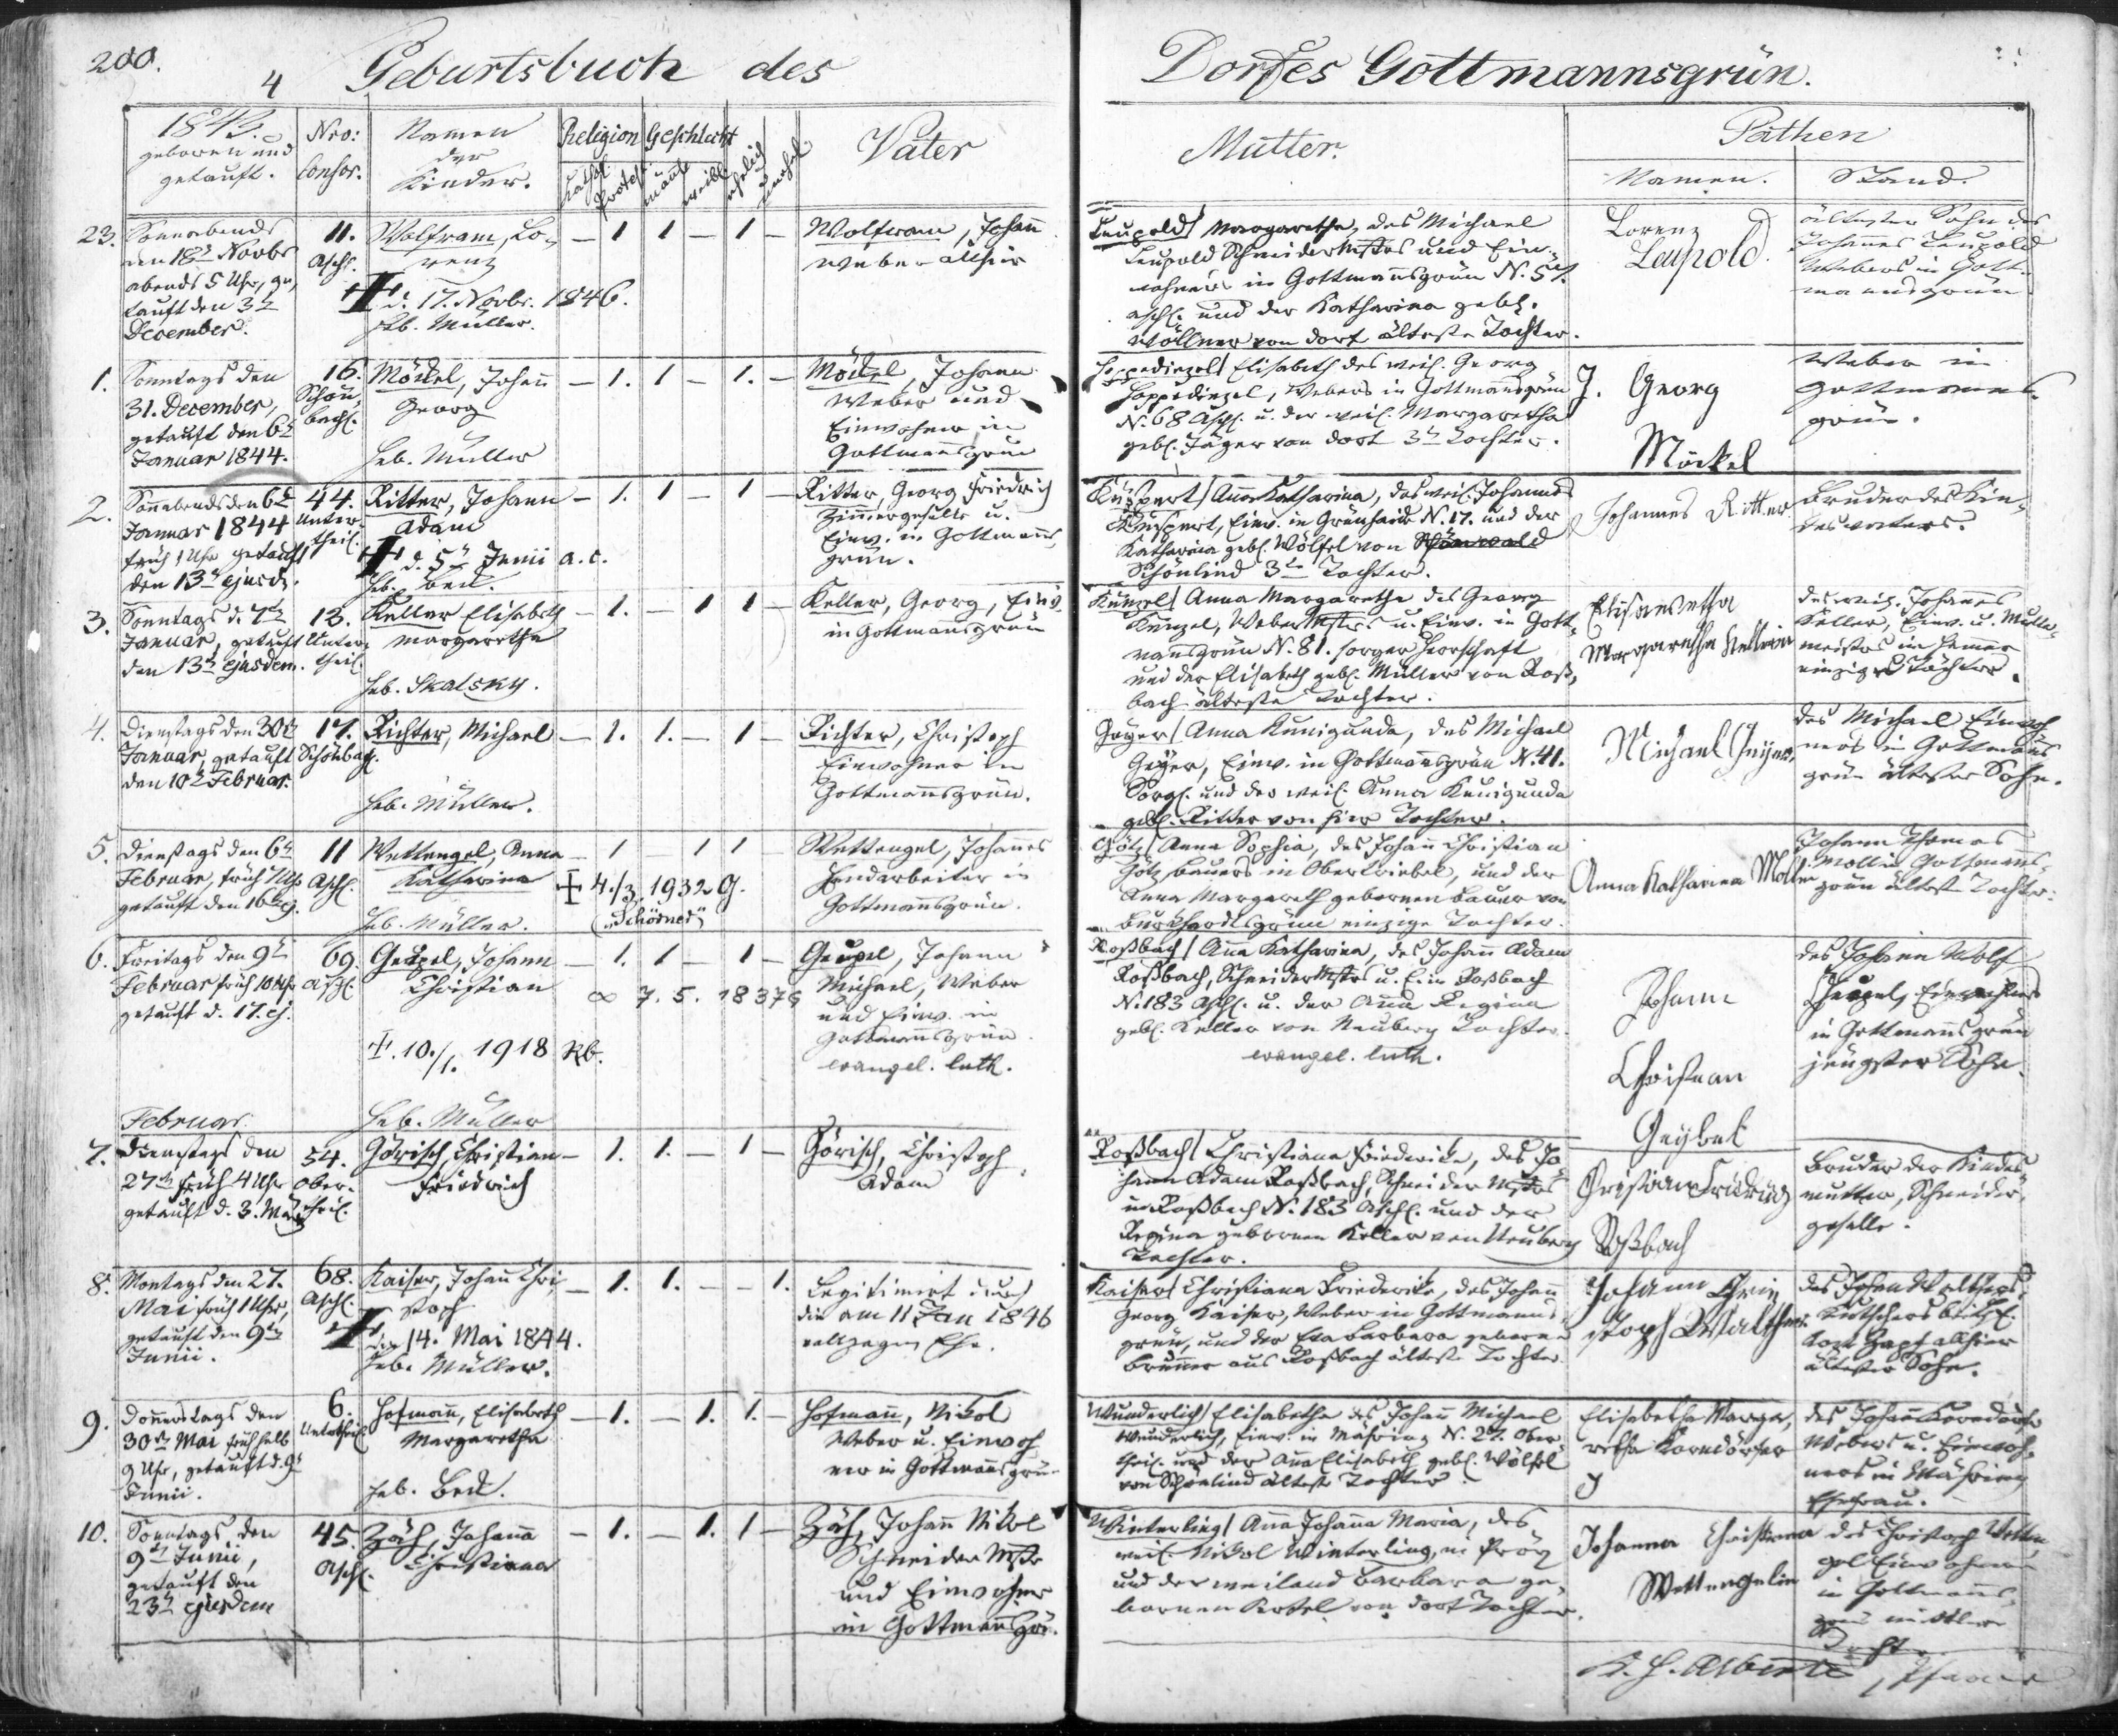 200.
4 Geburtsbuch des Dorfes Gottmannsgrün.
1843. geboren und getauft.
Nro: Conscr.
Namen der Kinder.
Religion
kathol. protest.
Geschlecht
männl. weibl. ehelich unehel.
Vater
Mutter.
Pathen
Namen. Stand.
23. Sonnabends
den 18t Novbr
abends 5 Uhr, ge-
tauft den 3t
December.
11.
Asch.
Wolfram, Lo-
renz
d. 17. Novbr. 1846.
Hb. Müller.
– 1 1 – 1 –
Wolfram, Johann
Weber allhier
Leupold / Margaretha, des Michael
Leupold Schneidermstrs und Ein-
wohners in Gottmannsgrün N. 57.
asch. und der Katharina geb.
Wöllner von dort älteste Tochter.
Lorenz
Leupold.
ältester Sohn des
Johannes Leupold
Webers in Gott-
mannsgrün
1. Sonntags den
31. December,
getauft den 6t
Januar 1844.
16.
Schön-
bach.
Möckel, Johann
Georg
Heb. Müller
– 1. 1 – 1. –
Möckel, Johann
Weber und
Einwohner in
Gottmannsgrün
Hoppedinzel / Elisabeth des weil. Georg
Hoppedinzel, Webers in Gottmannsgrün
N. 68 Asch. u. der weil. Margaretha
geb. Jäger von dort 3te Tochter.
J. Georg
Möckel
Weber in
Gottmanns-
grün.
2. Sonnabends den 6t
Januar 1844
früh 1 Uhr getauft
den 13t ejusd.
44.
Unter-
theil.
Ritter, Johann
Adam
d. 5t Junii a. c.
Heb. Beck.
– 1. 1 – 1 –
Ritter, Georg Friedrich
Zimmergeselle u.
Einw. in Gottmanns-
grün.
Küspert / Anna Katharina, des weil. Johannes
Küspert, Einw. in Grünhaid N. 17. und der
Katharina geb. Wölfel von Schönwald
Schönlind 3te Tochter.
Johannes Ritter
Bruder des Kin-
desvaters.
3. Sonntags d. 7t
Januar, getauft
den 13t ejusdem.
13.
Unter-
theil.
Keller Elisabeth
Margaretha
Heb. Skalsky.
– 1. – 1 1 –
Keller, Georg, Einw.
in Gottmannsgrün
Künzel / Anna Margaretha des Georg
Künzel, Webermstrs u. Einw. in Gott-
mannsgrün N. 81. sorger Herrschaft
und der Elisabeth geb. Müller von Roß-
bach älteste Tochter.
Elisabetha
Margaretha Kellerin
des weil. Johannes
Keller, Einw. u. Müller-
meisters in
einzige Tochter.
4. Dienstags den 30t
Januar, getauft
den 10t Februar.
17.
Schönbach.
Richter, Michael
Heb. Müller.
– 1. 1. – 1 –
Richter, Christoph
Einwohner in
Gottmannsgrün.
Geyer / Anna Kunigunda, des Michael
Geyer, Einw. in Gottmannsgrün N. 41.
Sorg. und der weil. Anna Kunigunda
geb. Ritter von hier Tochter.
Michael Geyer,
des Michael Einwoh-
ners in Gottmanns-
grün ältester Sohn.
5. Dienstags den 6t
Februar, früh 7 Uhr
getauft den 16t ej.
11
Asch.
Wettengel, Anna
Katharina
4./3. 1932 G.
("Schörner")
Heb. Müller.
– 1 – 1 1 –
Wettengel, Johannes
Handarbeiter in
Gottmannsgrün.
Götz / Anna Sophia, des Johann Christian
Götz Bauers in Obertriebel, und der
Anna Margareth gebornen Bauer von
Burkhardtsgrün einzige Tochter.
Anna Katharina
Johann Thomas
in Gottmanns-
grün älteste Tochter.
6. Freitags den 9t
Februar früh 10 Uhr
getauft d. 17. ej.
69.
Asch.
Geupel, Johann
Christian
∞ 7. 5. 1837 G
10./1. 1918 Rb.
Heb. Müller
– 1. 1 – 1 –
Geupel, Johann
Michael, Weber
und Einw. in
Gottmannsgrün
evangel. luth.
Roßbach / Anna Katharina, des Johann Adam
Roßbach, Schneidermstrs u. Ein. Roßbach
N. 183 Asch. u. der Anna Regina
geb. Keller von Neuberg Tochter.
evangel. luth.
Johann
Christian
Geybel
des Johann Wolf
Geupel, Einwohners
in Gottmannsgrün
jüngster Sohn.
Februar.
7. Dienstags den
27ten früh 4 Uhr
getauft d. 3. März
54.
Ober-
theil.
Görisch, Christian
Friedrich
– 1. 1. – 1 –
Görisch, Christoph
Adam
Roßbach / Christiana Friederike, des Jo-
hann Adam Roßbach, Schneidermstrs
in Roßbach N. 183 Asch. und der
Regina gebornen Keller von Neuberg
Tochter.
Christian Friedrich
Roßbach
Bruder der Kindes-
mutter, Schneider-
geselle.
8. Montags den 27.
Mai früh 1 Uhr,
getauft den 9t
Junii.
68.
Asch.
Kaiser, Johann Chri-
stoph
den 14. Mai 1844.
Heb. Müller.
– 1. 1. – – 1.
Legitimirt durch
die am 11 Jan 1846
vollzogene Ehe.
Kaiser / Christiana Friederike, des Johann
Georg Kaiser, Weber in Gottmanns-
grün, und der Eva Barbara geborne
Brunner aus Roßbach älteste Tochter.
Johann Chris-
toph Walther
des Johann Walthers,
Kutschers
allhier
ältester Sohn.
9. Donnerstags den
30t Mai früh halb
9 Uhr, getauft d. 9t
Junii.
6.
Untertheil
Hofmann, Elisabeth
Margaretha
Heb. Beck.
– 1. – 1. 1. –
Hofmann, Nikol
Weber u. Einwoh-
ner in Gottmannsgrün
Wunderlich / Elisabetha des Johann Michael
Wunderlich, Einw. in Mähring N. 27. Ober-
theil. und der Anna Elisabeth geb. Wölfel
von Schönlind älteste Tochter
Elisabetha Marga-
retha Korndörfer
des Johann Korndörfer
Webers u. Einwoh-
ners in Mähring
Ehefrau.
10. Sonntags den
9ten Junii,
getauft den
23t ejusdem
45.
Asch.
Zäh, Johanna
Christiana
– 1. – 1. 1 –
Zäh, Johann Nikol
Schneider Mstr
und Einwohner
in Gottmannsgrü.
Winterling / Anna Johanna Maria, des
weil. Nikol Winterling, in
und der weiland Barbara ge-
bornen von dort Tochter.
Johanna Christiana
Wettengelin
des Christoph Wetten-
gel Einwohner
in Gottmanns-
grün mittlere
Tochter
K. H. Alberti, Pfarrer